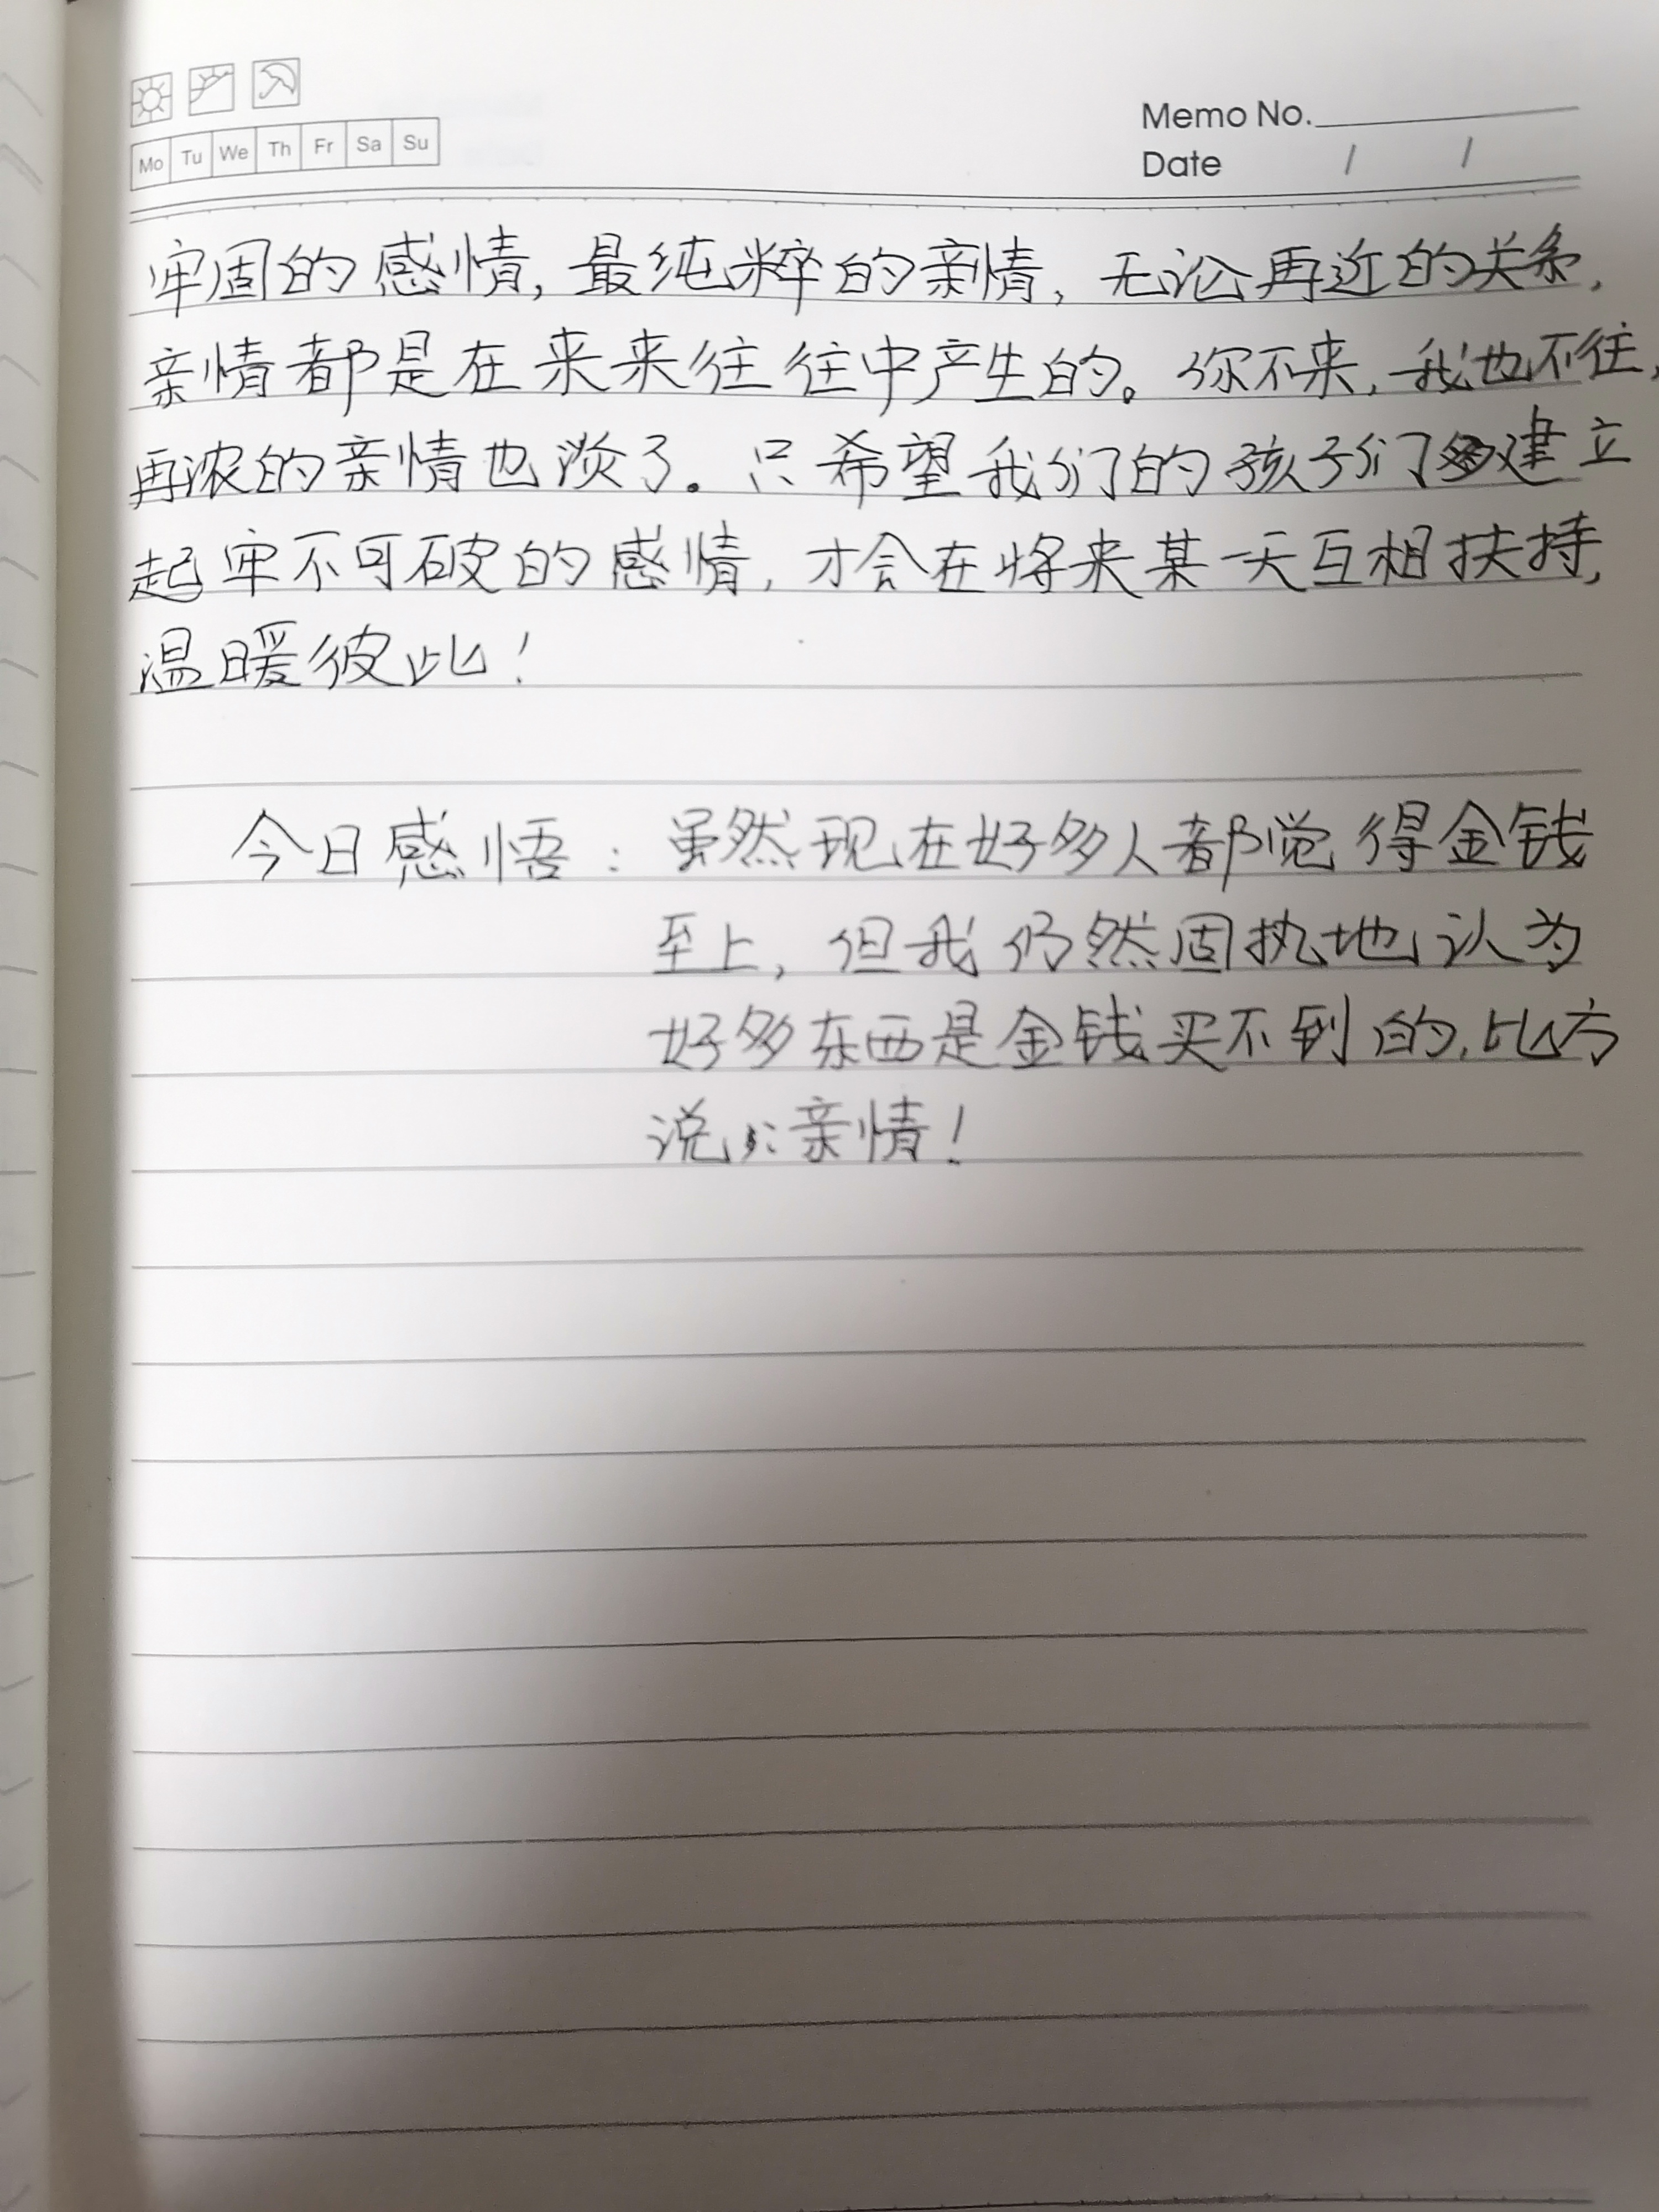 Memo No.
Mo Tu We Th Fr Sa Su
Date / /
牢固的感情,最纯粹的亲情,无论再近的关系,
亲情都是在来来往往中产生的。你不来,我也不往,
再浓的亲情也淡了。只希望我们的孩子们建立
起牢不可破的感情,才会在将来某一天互相扶持,
温暖彼此!
今日感悟:虽然现在好多人都觉得金钱
至上,但我仍然固执地认为
好多东西是金钱买不到的,比方
说:亲情!